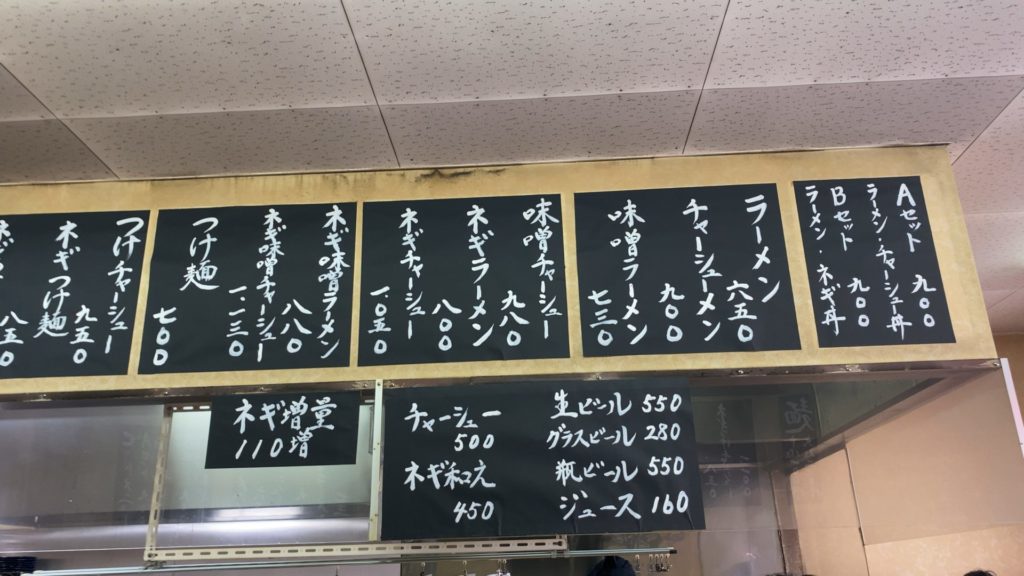 Aセット 九〇〇
ラーメン・チャーシュー丼
Bセット 九〇〇
ラーメン・ネギ丼
ラーメン 六五〇
チャーシューメン 九〇〇
味噌ラーメン 七三〇
味噌チャーシュー 九八〇
ネギラーメン 八〇〇
ネギチャーシュー 一、〇五〇
ネギ味噌ラーメン 八八〇
ネギ味噌チャーシュー 一、一三〇
つけ麺 七〇〇
つけチャーシュー 九五〇
ネギつけ麺 八五〇
ネギ増量
110増
チャーシュー
500
ネギ和え
450
生ビール 550
グラスビール 280
瓶ビール 550
ジュース 160